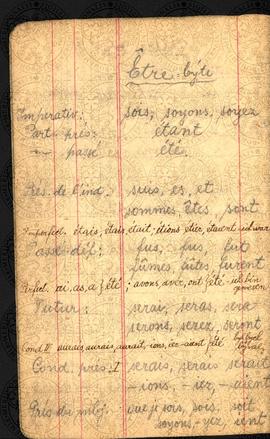 Être - byti
Imperatif: sois, soyons, soyez
Part. prés: étant
— passé été.
Prés. de l'ind. suis, es, et
sommes, êtes, sont
Imperfect. étais, étais, était, étions étiez, étaient
Passé déf: fus, fus, fut
fûmes, fûtes, furent
Perfect. ai, as, a été; avons, avez, ont été
Futur: serai, seras, sera
serons, serez, seront
Cond. II aurais, aurais, aurait, ions, iez-aient été
Cond. prés. I serais, serais, serait
-ions, -iez, -aient
Prés du subj. que je sois, sois, soit
soyons, -yez, sient